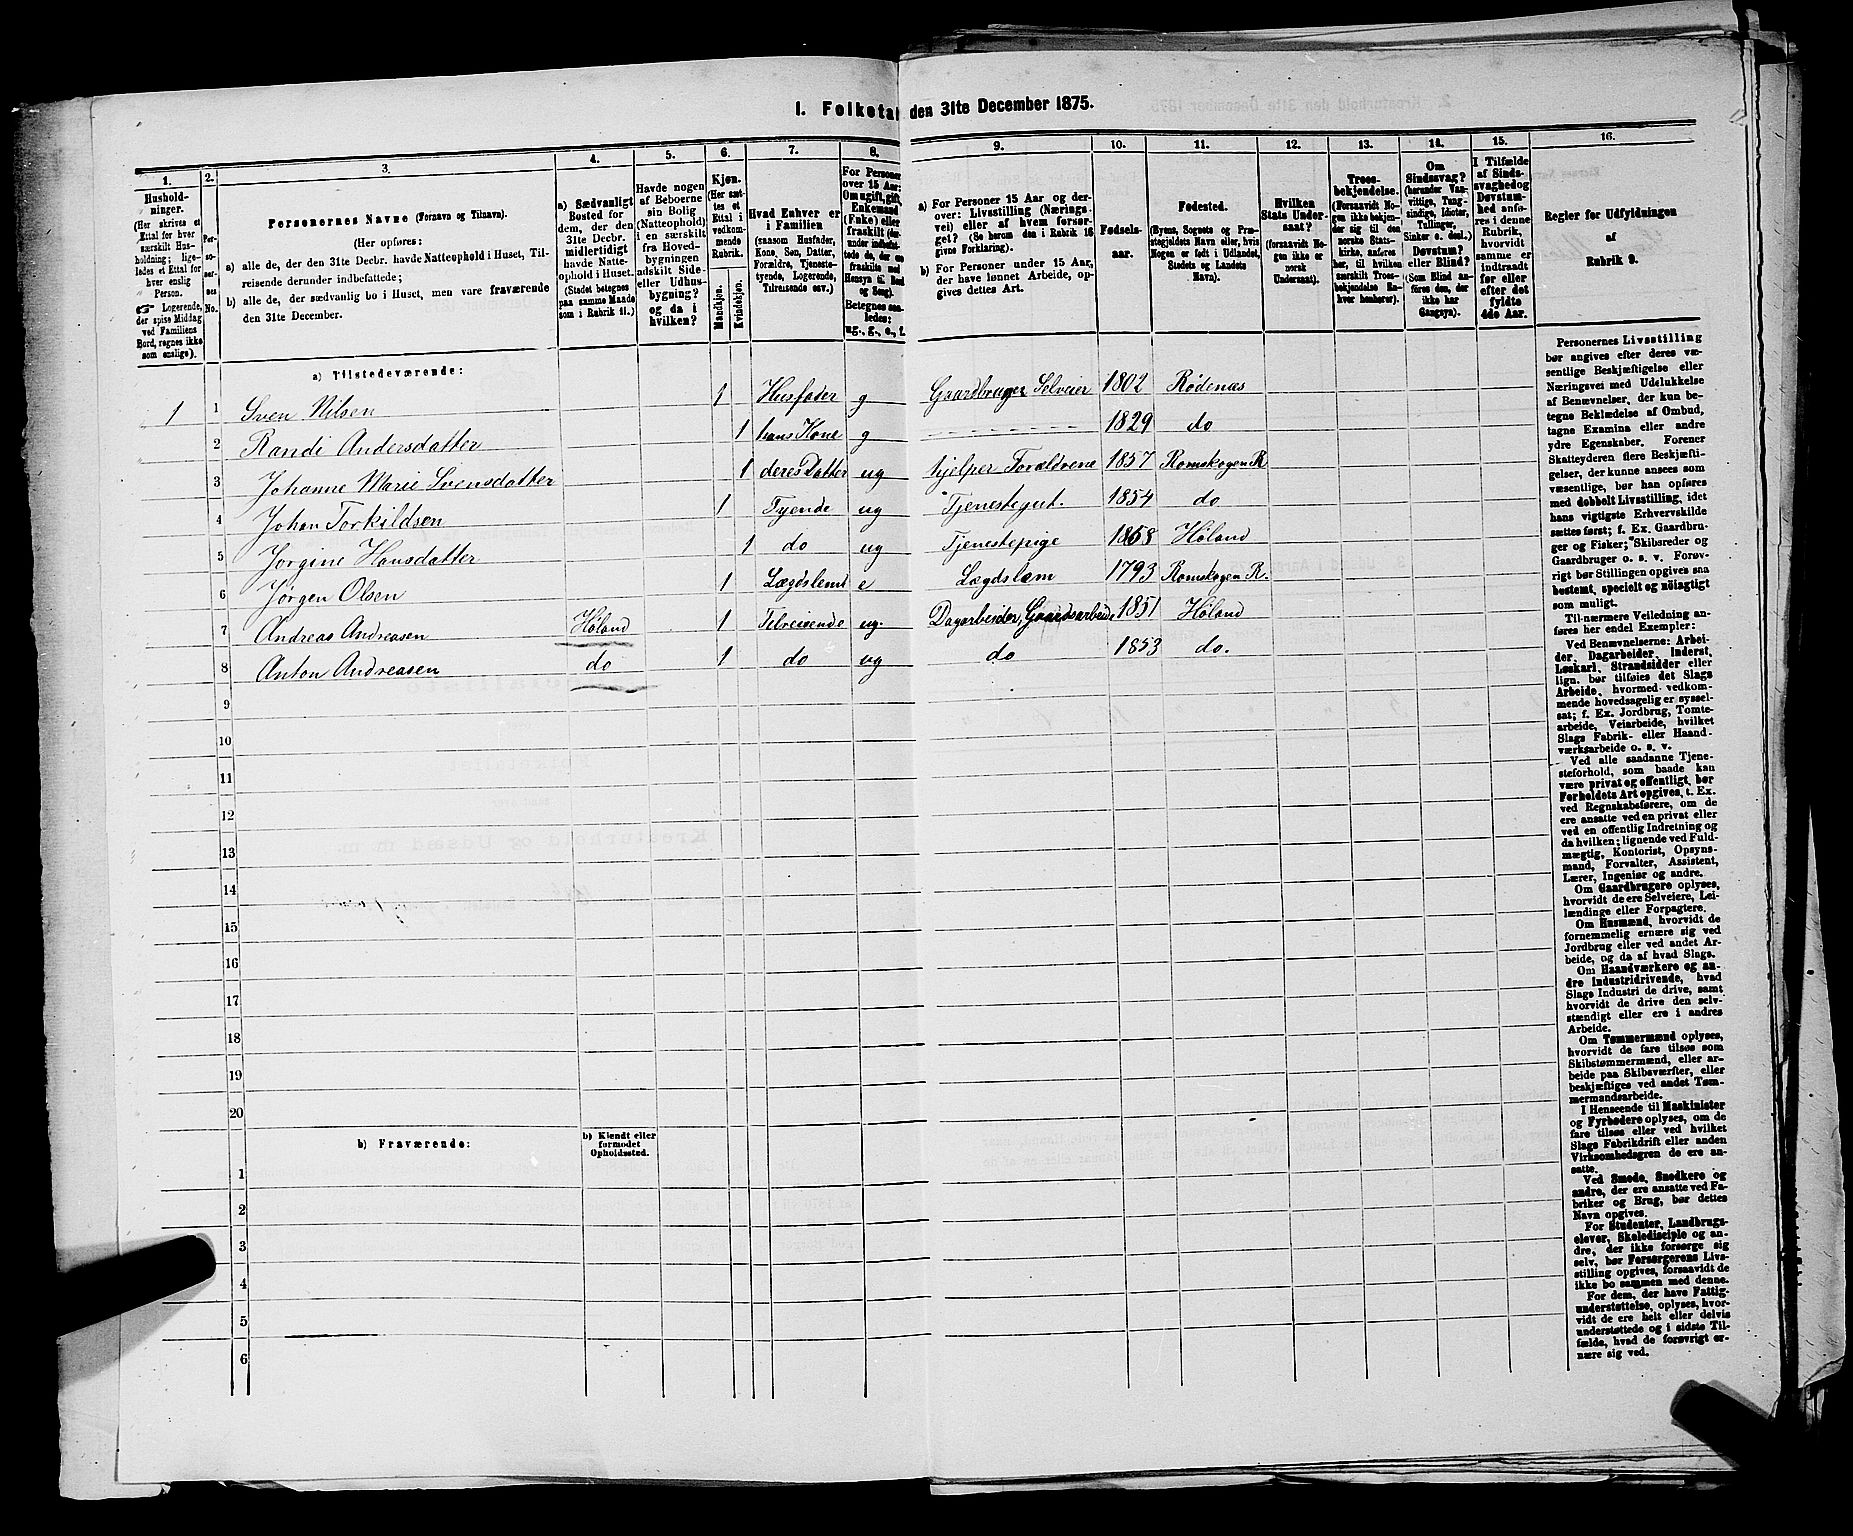 I. Folketal den 31te December 1875.
1. 2. 3. 4. 5. 6. 7. 8. 9. 10. 11. 12. 13. 14. 15. 16.
Husholdninger.
(Her skrives et
Ettal for hver
særskilt Husholdning;
ligeledes et Ettal for
hver enslig
Person.
Logerende,
der spise Middag
ved Familiens
Bord, regnes ikke
som enslige).
Personernes No.
Personernes Navne (Fornavn og Tilnavn).
(Her opføres:
a) alle de, der den 31te Decbr. havde Natteophold i Huset, Tilreisende derunder indbefattede;
b) alle de, der sædvanlig bo i Huset, men vare fraværende
den 31te December.
a) Sædvanligt
Bosted for
dem, der den
31te Decbr.
midlertidigt
havde Natteophold i Huset.
(Stedet betegnes
paa samme Maade
som i Rubrik 11.)
Havde nogen
af Beboerne
sin Bolig
(Natteophold)
i en særskilt
fra Hovedbygningen
adskilt Side-
eller Udhusbygning?
og da i
hvilken?
Kjøn.
(Her sættes et
Ettal i
vedkommende
Rubrik.)
Mandkjøn.
Kvindekjøn.
Hvad Enhver er
i Familien
(saasom Husfader,
Kone, Søn, Datter,
Forældre, Tjenestetyende, Logerende,
Tilreisende osv.)
For Personer
over 15 Aar:
Om ugift, gift,
Enkemand
(Enke) eller
fraskilt
Betegnes saaledes:
ug., g., e., f.
a) For Personer 15 Aar og derover: Livsstilling (Næringsvei) eller af hvem forsørget? (Se herom den i Rubrik 16
givne Forklaring).
b) For Personer under 15 Aar,
der have lønnet Arbeide, opgives dettes Art.
Fødselsaar.
Fødested.
(Byens, Sognets og Præstegjeldets Navn eller, hvis
Nogen er født i Udlandet,
Stedets og Landets
Navn).
Hvilken
Stats Undersaat?
(forsaavidt Nogen ikke er
norsk
Undersaat).
Troesbekjendelse.
(Forsaavidt Nogen ikke bekjender sig til den
norske Statskirke, anføres
her, til hvilken
særskilt Troesbekjendelse Enhver henhører).
Om
Sindssvag?
(herunder Vanvittige, Tungsindige, Idioter,
Tullinger,
Sinker o. desl.)
Døvstum?
eller Blind?
(Som Blind anføres den, der
ikke har
Gangsyn).
I Tilfælde
af Sindssvaghed og
Døvstumhed anføres i denne
Rubrik,
hvorvidt
samme er
indtraadt
før eller
efter det
fyldte
4de Aar.
Regler for Udfyldningen
af
Rubrik 9.
a) Tilstedeværende:
1 1 Sven Nilsen 1 Husfader g Gaardbruger Selveier 1802 Rødenæs
2 Randi Andersdatter 1 hans Kone g 1829 do
3 Johanne Marie Svensdatter 1 deres Datter ug hjelper Forældrene 1857 Romskogen R
4 Johan Torkildsen 1 Tyende ug Tjenestegut. 1854 do
5 Jørgine Hansdatter 1 do ug Tjenestepige 1858 Høland
6 Jørgen Olsen 1 Lægdslem e Lægdslem 1793 Romskogen R.
7 Andreas Andreasen Høland 1 Tilreisende ug. Dagarbeider, Gaardsarbeide 1851 Høland
8 Anton Andreasen do 1 do ug do 1853 do.
9
10
11
12
13
14
15
16
17
18
19
20
b) Fraværende:
b) Kjendt eller
formodet
Opholdssted.
1
2
3
4
5
6
Personernes Livsstilling
bør angives efter deres væsentlige Beskjæftigelse eller
Næringsvei med Udelukkelse
af Benævnelser, der kun betegne Beklædelse af Ombud,
tagne Examina eller andre
ydre Egenskaber. Forener
Skatteyderen flere Beskjæftigelser, der kunne ansees som
væsentlige, bør han opføres
med dobbelt Livsstilling, idet
hans vigtigste Erhvervskilde
sættes først; f. Ex. Gaardbruger og Fisker; Skibsreder og
Gaardbruger o. s. v. Forøvrigt bør Stillingen opgives saa
bestemt, specielt og nøiagtigt
som muligt.
Til nærmere Veiledning anføres her endel Exempler:
Ved Benævnelserne: Arbeider, Dagarbeider, Inderst,
Løskarl, Strandsidder eller
lign. bør tilføies det Slags
Arbeide, hvormed vedkommende hovedsagelig er sysselsat; f. Ex. Jordbrug, Tomtearbeide, Veiarbeide, hvilket
Slags Fabrik- eller Haandværksarbeide o. s. v.
Ved alle saadanne Tjenesteforhold, som baade kan
være privat og offentligt, bør
Forholdets Art opgives, t. Ex.
ved Regnskabsførere, om de
ere ansatte ved en privat eller
ved en offentlig Indretning og
da hvilken; lignende ved Fuldmægtig, Kontorist, Opsynsmand, Forvalter, Assistent,
Lærer, Ingeniør og andre.
Om Gaardbrugere oplyses,
hvorvidt de ere Selveiere, Leilændinge eller Forpagtere.
Om Husmænd, hvorvidt de
fornemmelig ernære sig ved
Jordbrug eller ved andet Arbeide, og da af hvad Slags.
Om Haandværkere og andre Industridrivende, hvad
Slags Industri de drive, samt
hvorvidt de drive den selvstændigt eller ere i andres
Arbeide.
Om Tømmermænd oplyses,
hvorvidt de fare tilsøs som
Skibstømmermænd, eller arbeide paa Skibsværfter, eller
beskjæftiges ved andet Tømmermandsarbeide.
I Henseende til Maskinister
og Fyrbødere oplyses, om de
fare tilsøs eller ved hvilket
Slags Fabrikdrift eller anden
Virksomhedsgren de ere ansatte.
Ved Smede, Snedkere og
andre, der ere ansatte ved Fabriker og Brug, bør dettes
Navn opgives.
For Studenter, Landbrugselever, Skoledisciple og andre, der ikke forsørge sig
selv, bør Forsørgerens Livsstilling opgives, forsaavidt de
ikke bo sammen med denne.
For dem, der have Fattigunderstøttelse, oplyses, hvorvidt de ere helt eller delvis
understøttede og i sidste Tilfælde, hvad de forøvrigt ernære sig ved.